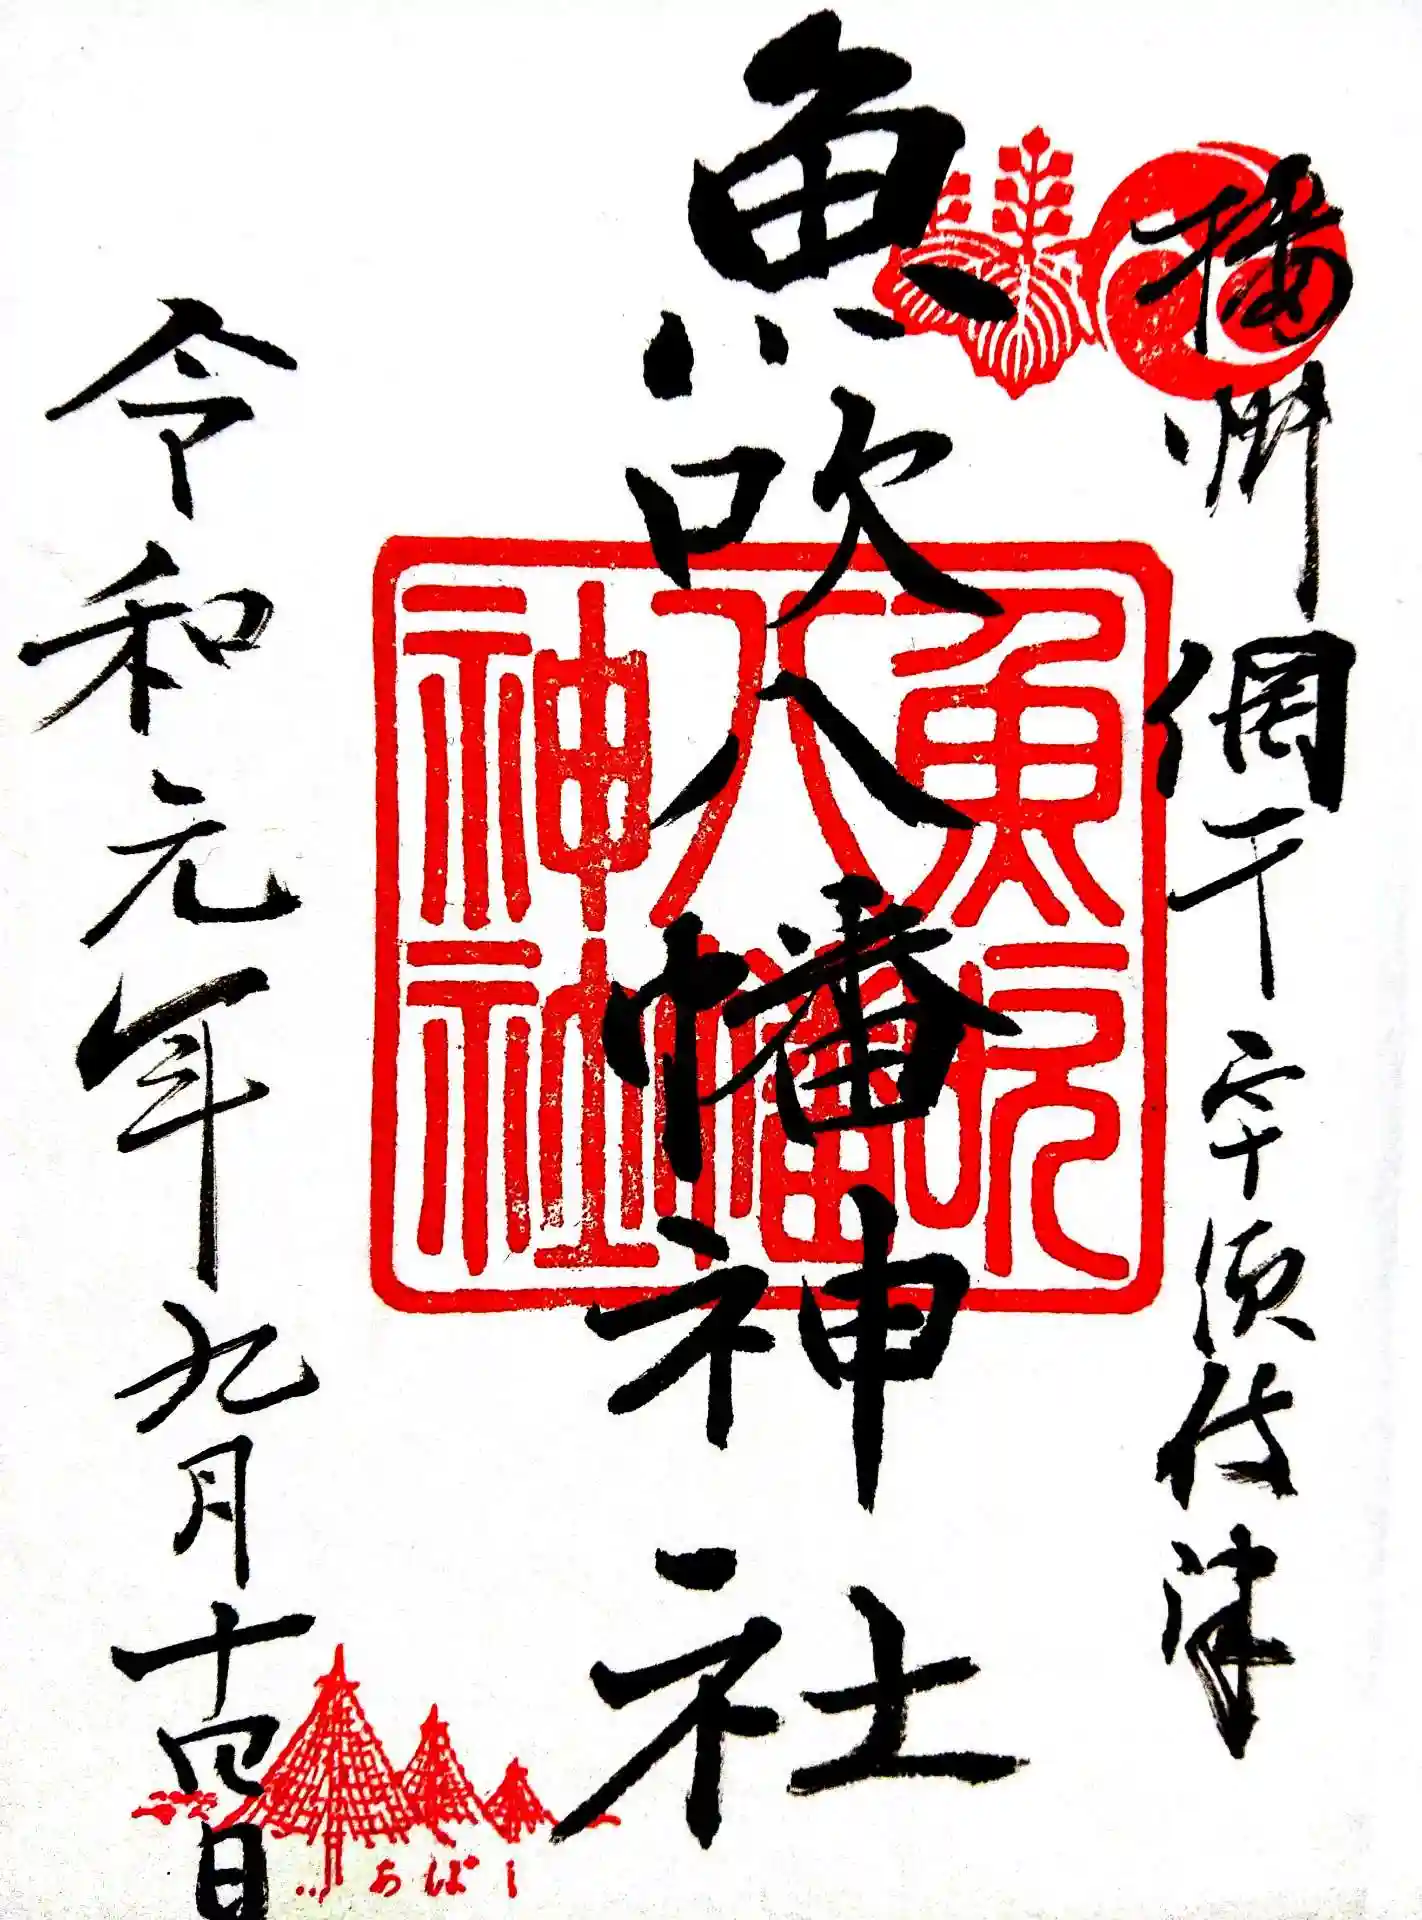 播州網干宇須伎津
魚吹八幡神社
令和元年九月十四日
魚吹
八幡
神社
あぼし